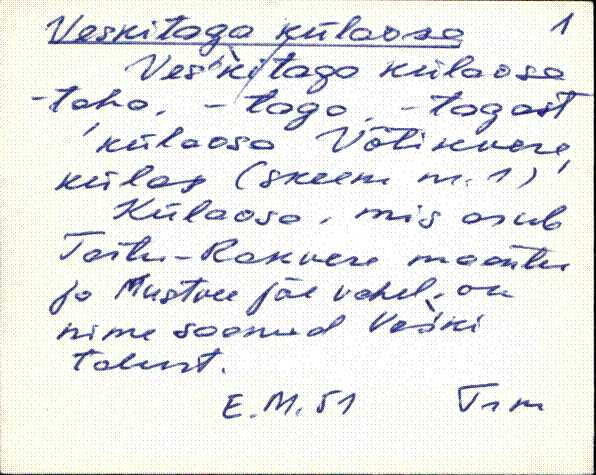 Veskitaga külaosa 1
Ves'kitaga külaosa
-taha, -taga, -tagast
'külaosa Võtikvere
külas (skeem nr. 1)'
Külaosa, mis asub
Tartu-Rakvere maantee
ja Mustvee jõe vahel, on
nime saanud Veski
talust.
E.M. 51 Trm